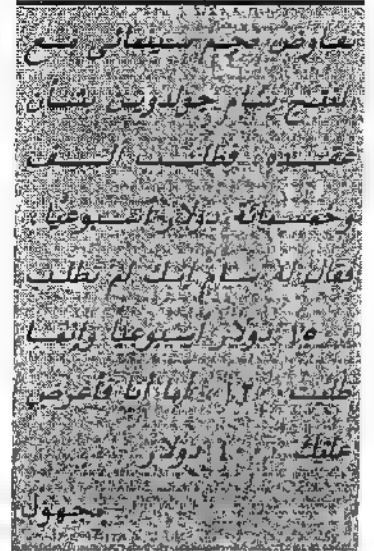 تفاوض نجم سينمائي مع
المنتج سام جولدوين بشأن
عقده، فطلب ألف
وخمسمائة دولار أسبوعيًا،
فقال له سام إنك لم تطلب
١٥ دولار أسبوعياً وإنما
طلبت ١٢، أما أنا فأعرض
عليك ١٠ دولار
مجهول